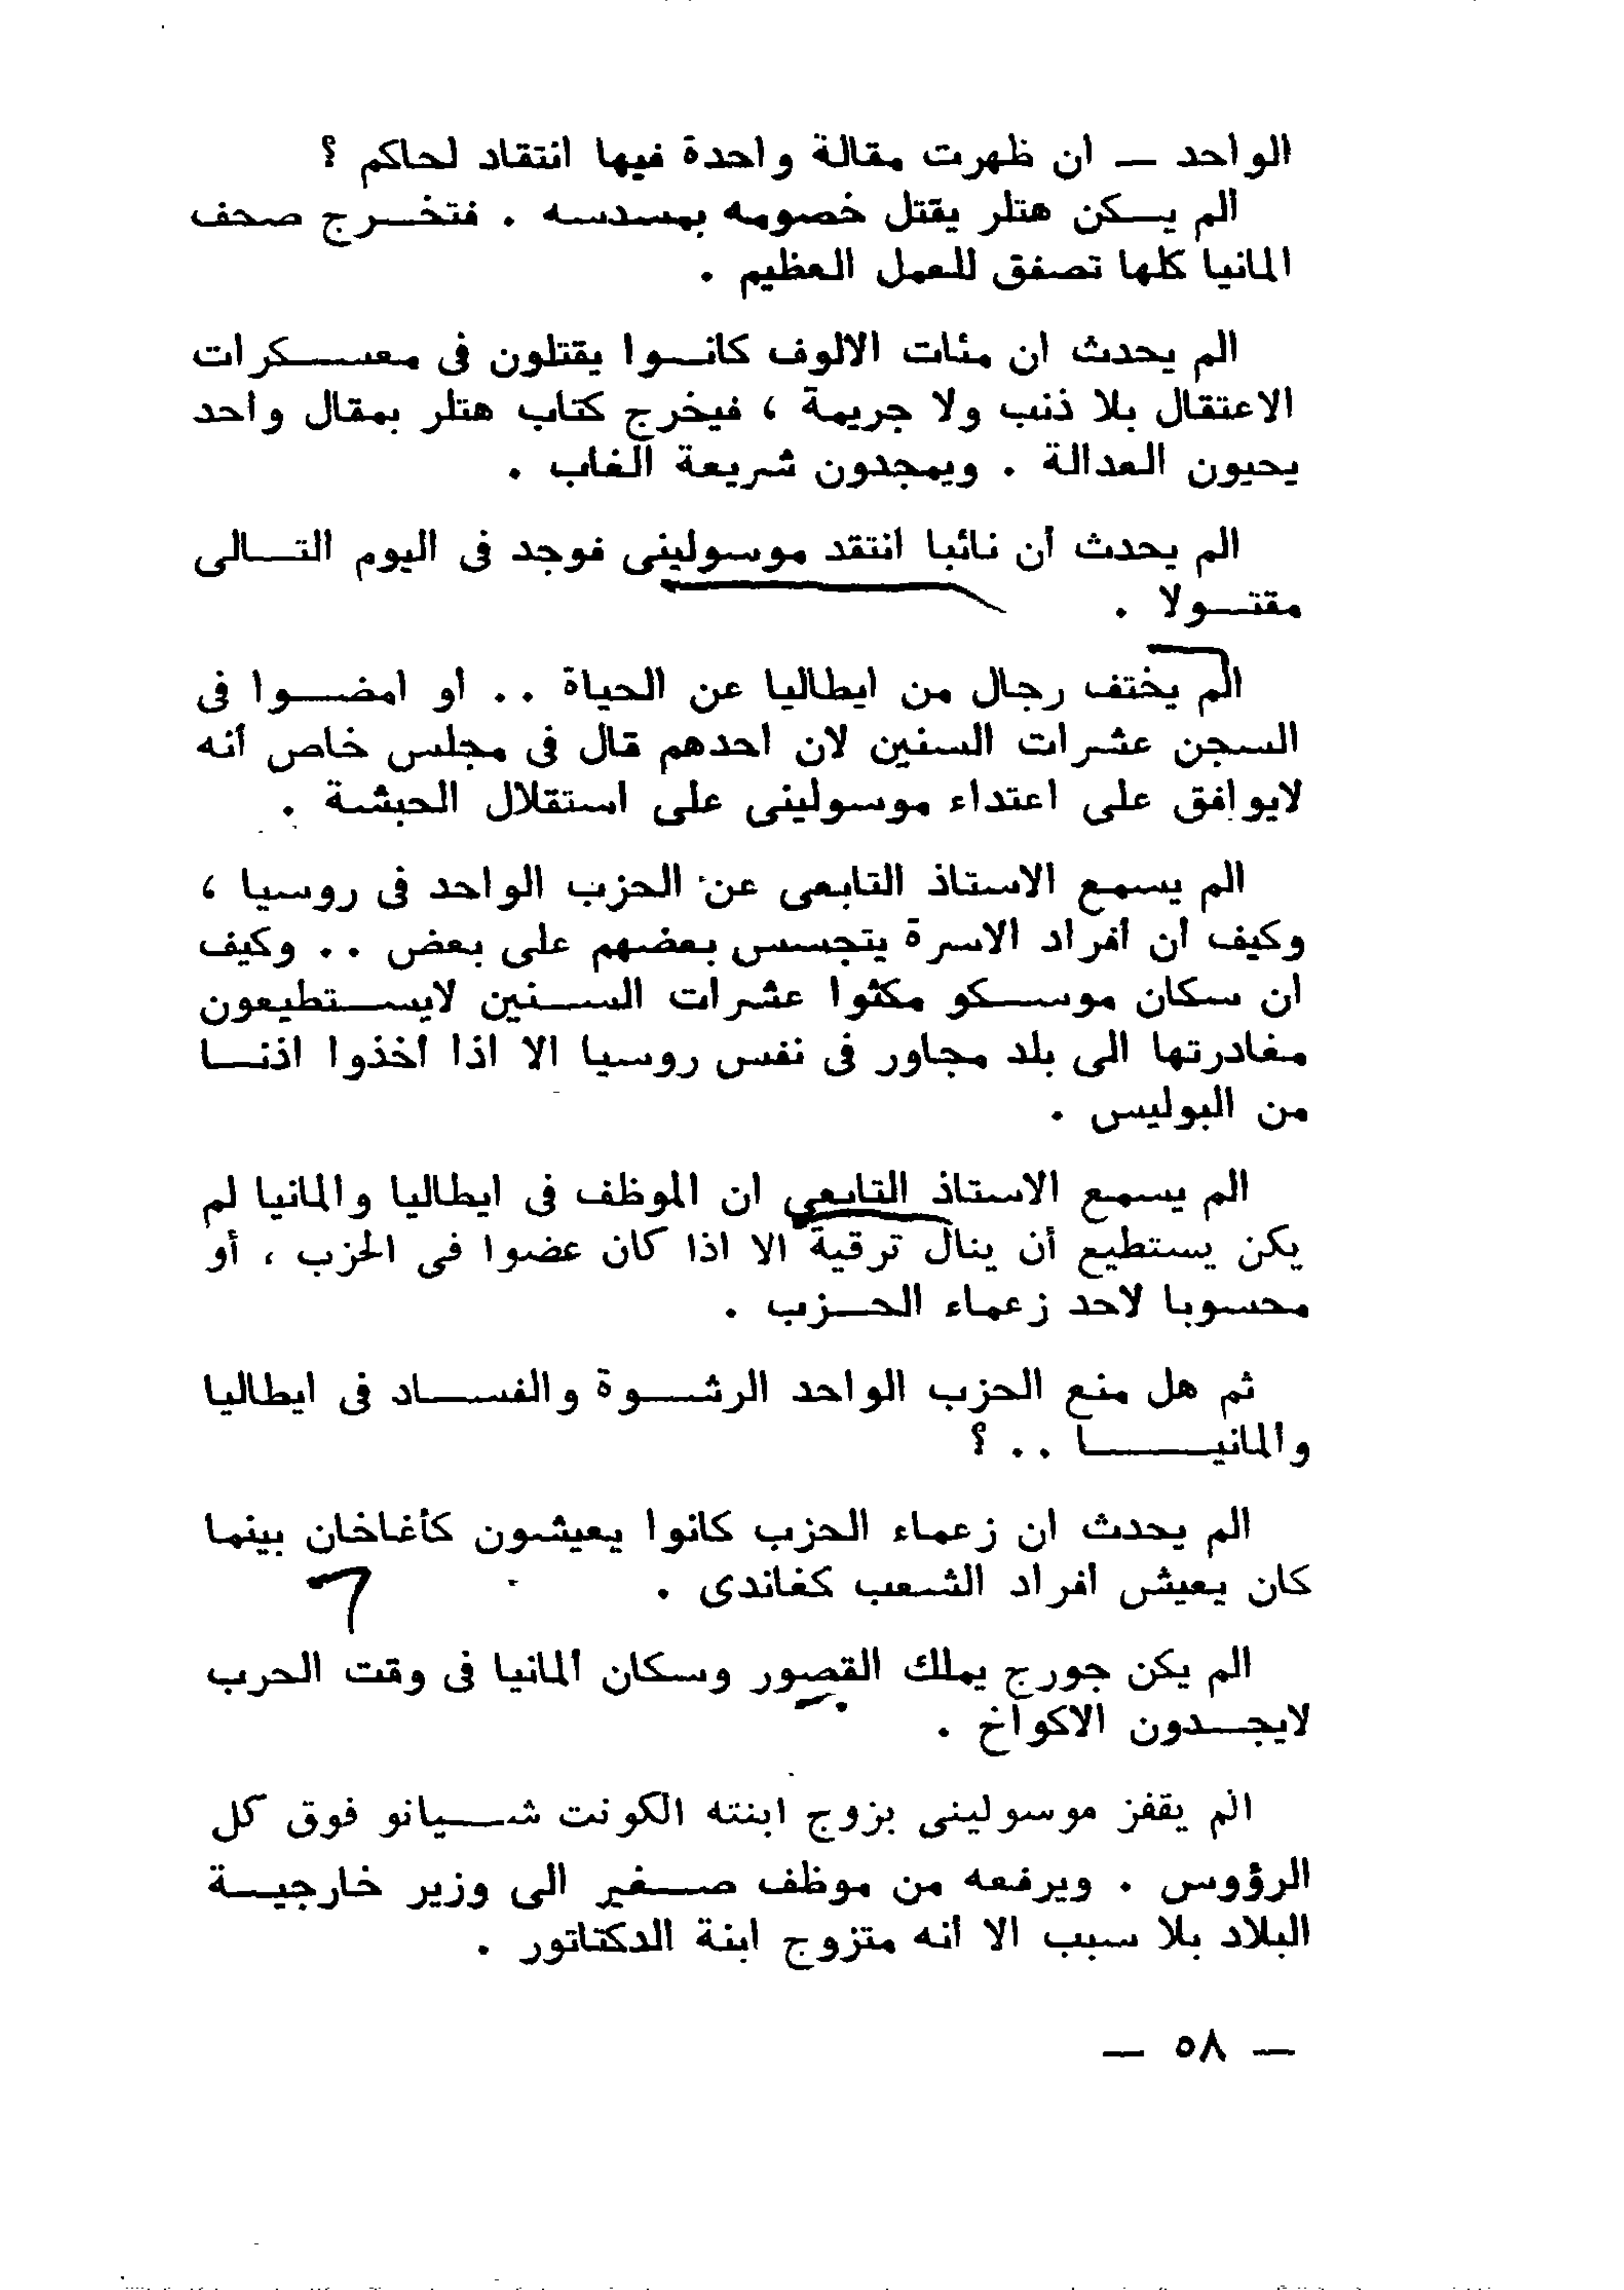 الواحد — ان ظهرت مقالة واحدة فيها انتقاد لحاكم ؟
الم يكن هتلر يقتل خصومه بمسدسه . فتخرج صحف
المانيا كلها تصفق للعمل العظيم .
الم يحدث ان مئات الالوف كانوا يقتلون فى معسكرات
الاعتقال بلا ذنب ولا جريمة ، فيخرج كتاب هتلر بمقال واحد
يحيون العدالة . ويمجدون شريعة الغاب .
الم يحدث أن نائبا انتقد موسولينى فوجد فى اليوم التالى
مقتولا .
الم يختف رجال من ايطاليا عن الحياة .. او امضوا فى
السجن عشرات السنين لان احدهم قال فى مجلس خاص أنه
لايوافق على اعتداء موسولينى على استقلال الحبشة .
الم يسمع الاستاذ التابعى عن الحزب الواحد فى روسيا ،
وكيف أن أفراد الاسرة يتجسس بعضهم على بعض .. وكيف
ان سكان موسكو مكثوا عشرات السنين لايستطيعون
مغادرتها الى بلد مجاور فى نفس روسيا الا اذا أخذوا اذنا
من البوليس .
الم يسمع الاستاذ التابعي ان الموظف فى ايطاليا والمانيا لم
يكن يستطيع أن ينال ترقية الا اذا كان عضوا فى الحزب ، أو
محسوبا لاحد زعماء الحزب .
ثم هل منع الحزب الواحد الرشوة والفساد فى ايطاليا
والمانيا .. ؟
الم يحدث ان زعماء الحزب كانوا يعيشون كأغاخان بينما
كان يعيش افراد الشعب كغاندى .
الم يكن جورج يملك القصور وسكان ألمانيا فى وقت الحرب
لايجدون الاكواخ .
الم يقفز موسولينى بزوج ابنته الكونت شيانو فوق كل
الرؤوس . ويرفعه من موظف صغير الى وزير خارجية
البلاد بلا سبب الا أنه متزوج ابنة الدكتاتور .
— ٥٨ —